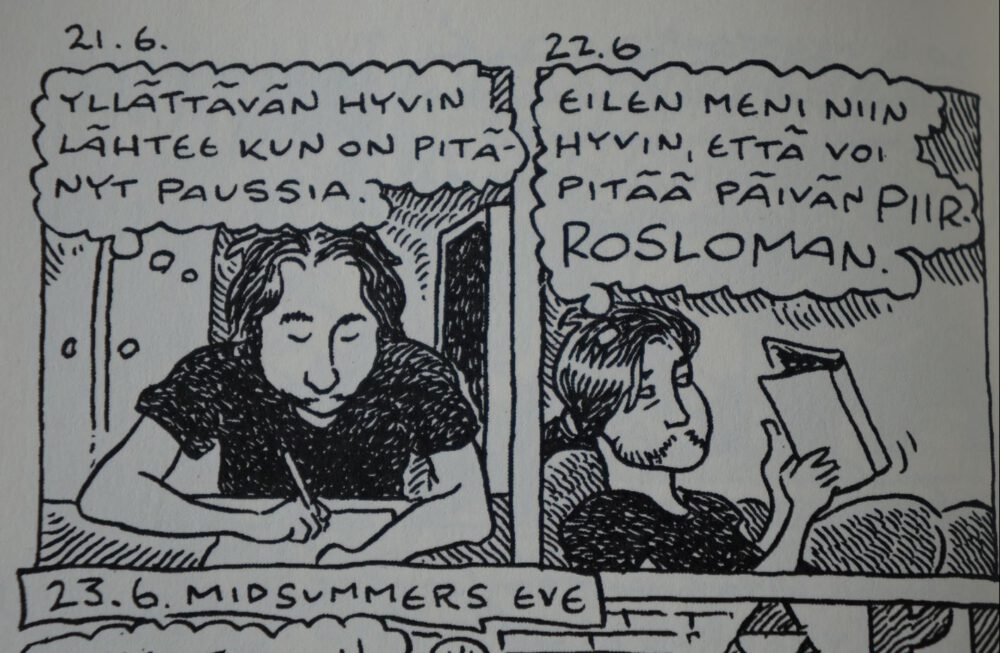 21.6.
YLLÄTTÄVÄN HYVIN
LÄHTEE KUN ON PITÄ-
NYT PAUSSIA.
22.6
EILEN MENI NIIN
HYVIN, ETTÄ VOI
PITÄÄ PÄIVÄN PIIR-
ROSLOMAN.
23.6. MIDSUMMERS EVE